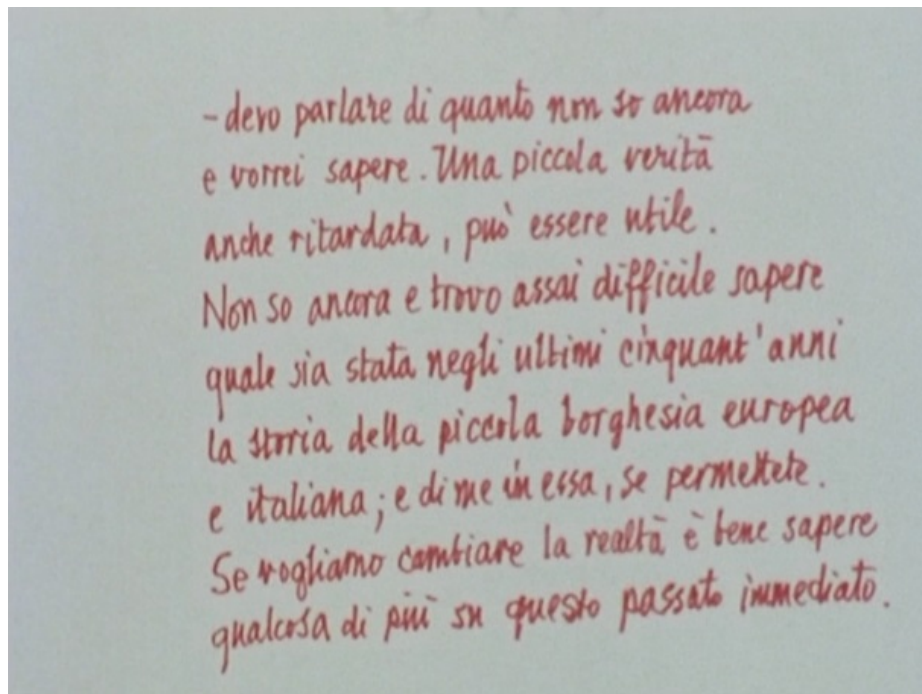 - devo parlare di quanto non so ancora
e vorrei sapere. Una piccola verità
anche ritardata, può essere utile.
Non so ancora e trovo assai difficile sapere
quale sia stata negli ultimi cinquant'anni
la storia della piccola borghesia europea
e italiana; e di me in essa, se permettete.
Se vogliamo cambiare la realtà è bene sapere
qualcosa di più su questo passato immediato.